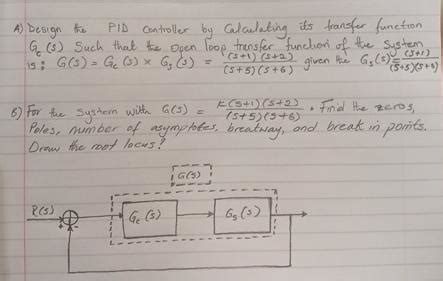 A) Design the PID Controller by Calculating its transfer function
Gc(s) Such that the open loop transfer function of the system
is: G(s) = Gc(s) × Gs(s) = (s+1)(s+2)/(s+5)(s+6) given the Gs(s) = (s+1)/(s+5)(s+6)
6) For the system with G(s) = K(s+1)(s+2)/(s+5)(s+6). Find the zeros,
Poles, number of asymptotes, breatway, and break in points.
Draw the root locus?
G(s)
R(s)
+
-
Gc(s)
Gs(s)